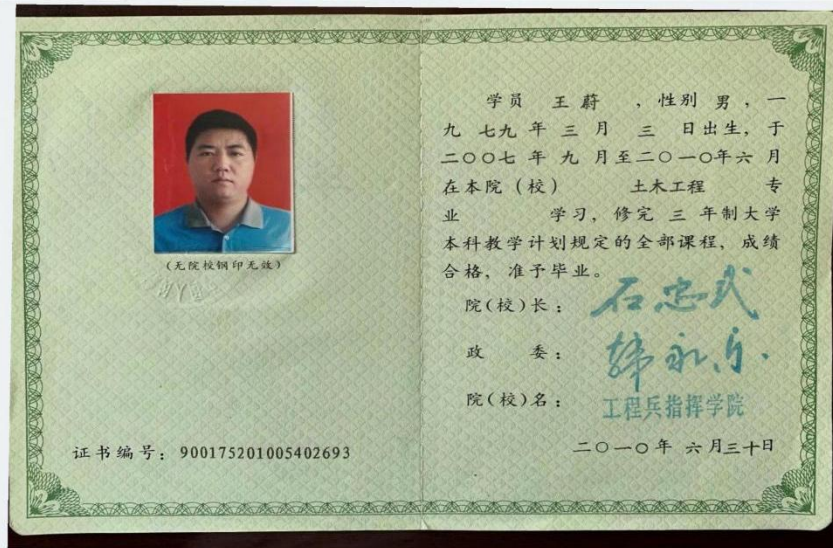 (无院校钢印无效)
证书编号：900175201005402693
学员 王蔚 ，性别 男，一
九 七九 年 三 月 三 日出生，于
二〇〇七 年 九 月至二〇一〇年六 月
在本院（校） 土木工程 专
业 学习，修完 三 年制大学
本科教学计划规定的全部课程，成绩
合格，准予毕业。
院(校)长： 石忠武
政 委： 韩永乐
院(校)名： 工程兵指挥学院
二〇一〇年 六月三十日